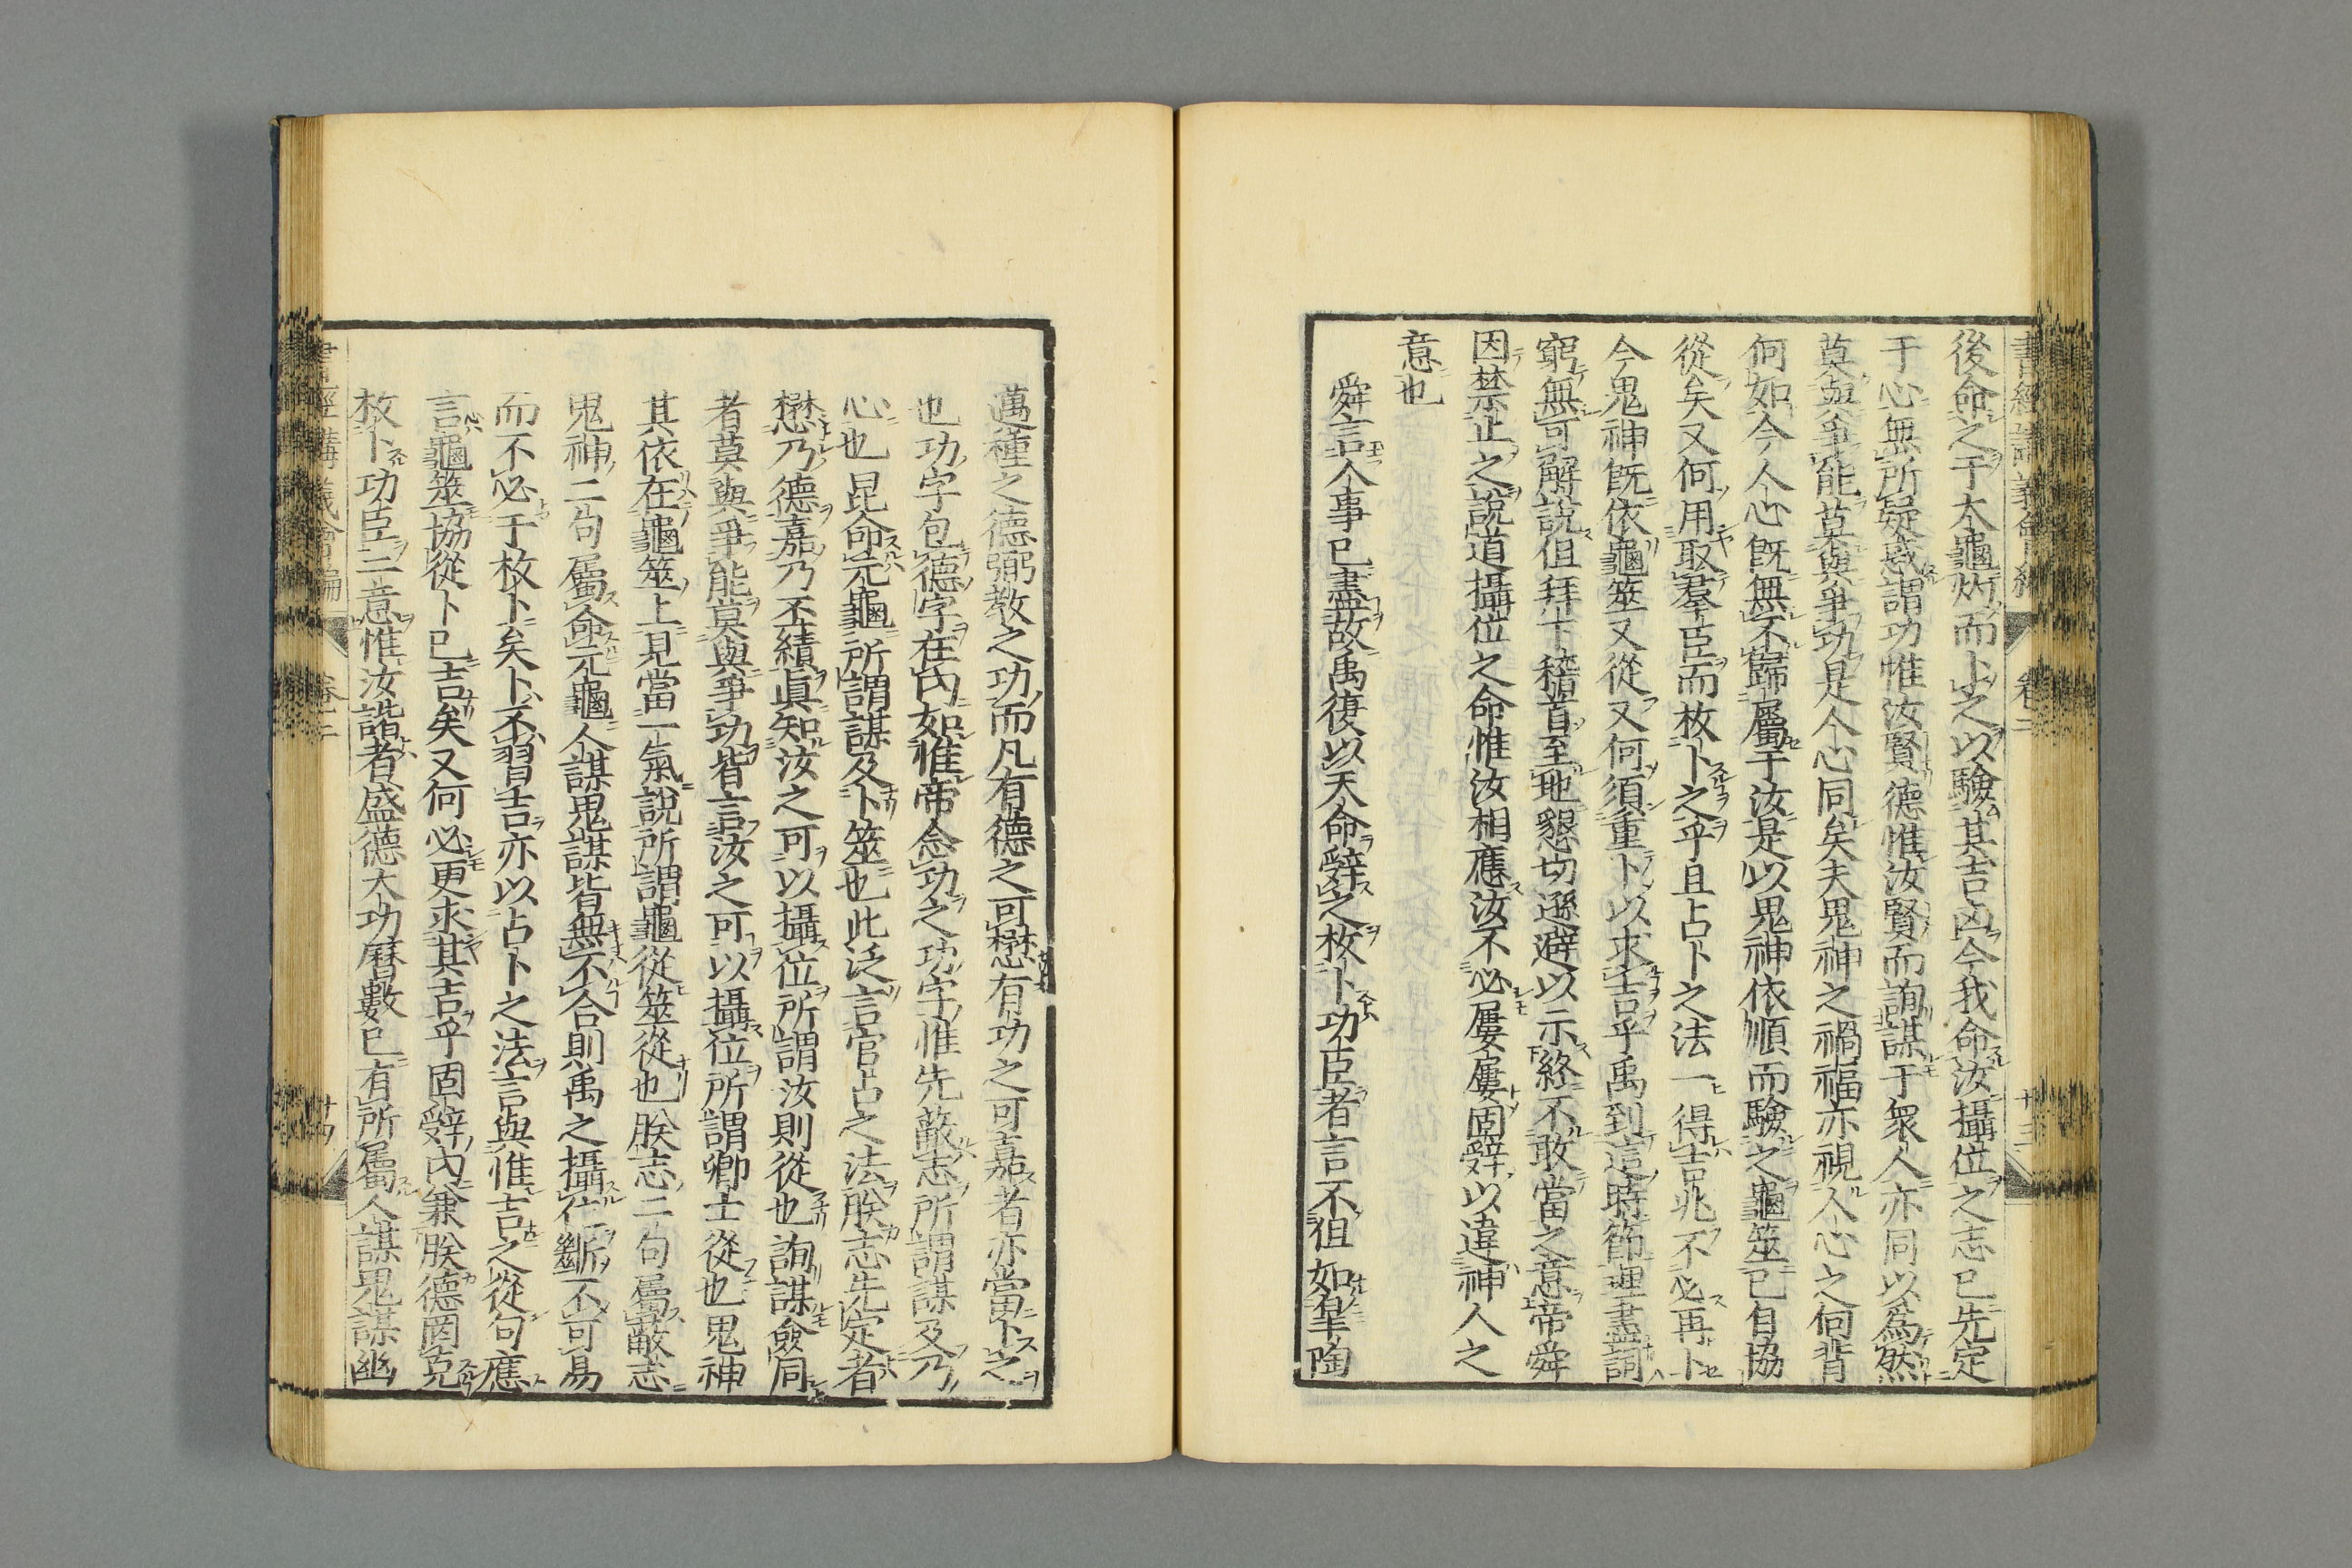 後命之于大龜灼而卜之以驗其吉凶今我命汝攝位之志已先定
于心無所疑惑謂功惟汝賢德惟汝賢而詢謀于衆人亦同以爲然
莫與爭能莫與爭功是人心同矣夫鬼神之禍福亦視人心之向背
何如今人心既無不歸屬于汝是以鬼神依順而驗之龜筮已自協
從矣又何用取羣臣而枚卜之乎且占卜之法一得吉兆不必再卜
今鬼神既依龜筮又從又何須重卜以求吉乎禹到這時節理盡詞
窮無可解說但拜下稽首至地懇切遜避以示終不敢當之意帝舜
因禁止之說道攝位之命惟汝相應汝不必屢屢固辭以違神人之
意也
舜言人事已盡故禹復以天命辭之枚卜功臣者言不徂如皐陶
邁種之德弼教之功而凡有德之可懋有功之可嘉者亦當卜之
也功字包德字在內如惟帝念功之功字惟先蔽志所謂謀及乃
心也昆命元龜所謂謀及卜筮也此泛言官占之法朕志先定者
懋乃德嘉乃丕績眞知汝之可以攝位所謂汝則從也詢謀僉同
者莫與爭能莫與爭功皆言汝之可以攝位所謂卿士從也鬼神
其依在龜筮上見當一氣說所謂龜從筮從也朕志二句屬蔽志
鬼神二句屬命元龜人謀鬼謀皆無不合則禹之攝位斷不可易
而不必于枚卜矣卜不習吉亦以占卜之法言與惟吉之從句應
言龜筮協從卜已吉矣又何必更求其吉乎固辭內兼朕德罔克
枚卜功臣二意惟汝諧者盛德大功曆數已有所屬人謀鬼謀幽
書經講義會編
卷二
十三
書經講義會編
卷二
十四